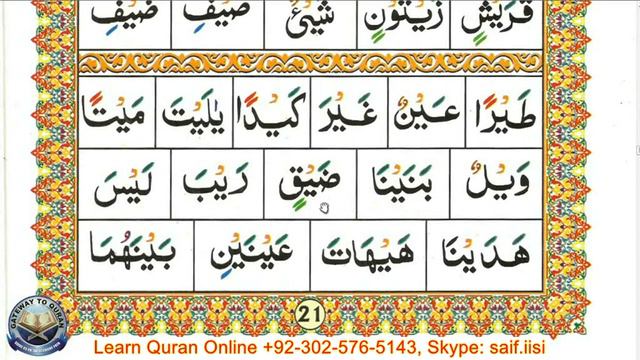 قُرَيْشٍ زَيْتُوْنٍ شَيْئٌ صَيْفِ ضَيْفِ
طَيْرًا عَيْنٌ غَيْرَ كَيْدًا يٰلَيْتَ مَيْتًا
وَيْلٌ بَنَيْنَا ضَيْقٍ رَيْبَ لَيْسَ
هَدَيْنَا هَيْهَاتَ عَيْنَيْنِ بَيْنَهُمَا
21
GATEWAY TO QURAN
Learn Quran Online +92-302-576-5143, Skype: saif.iisi